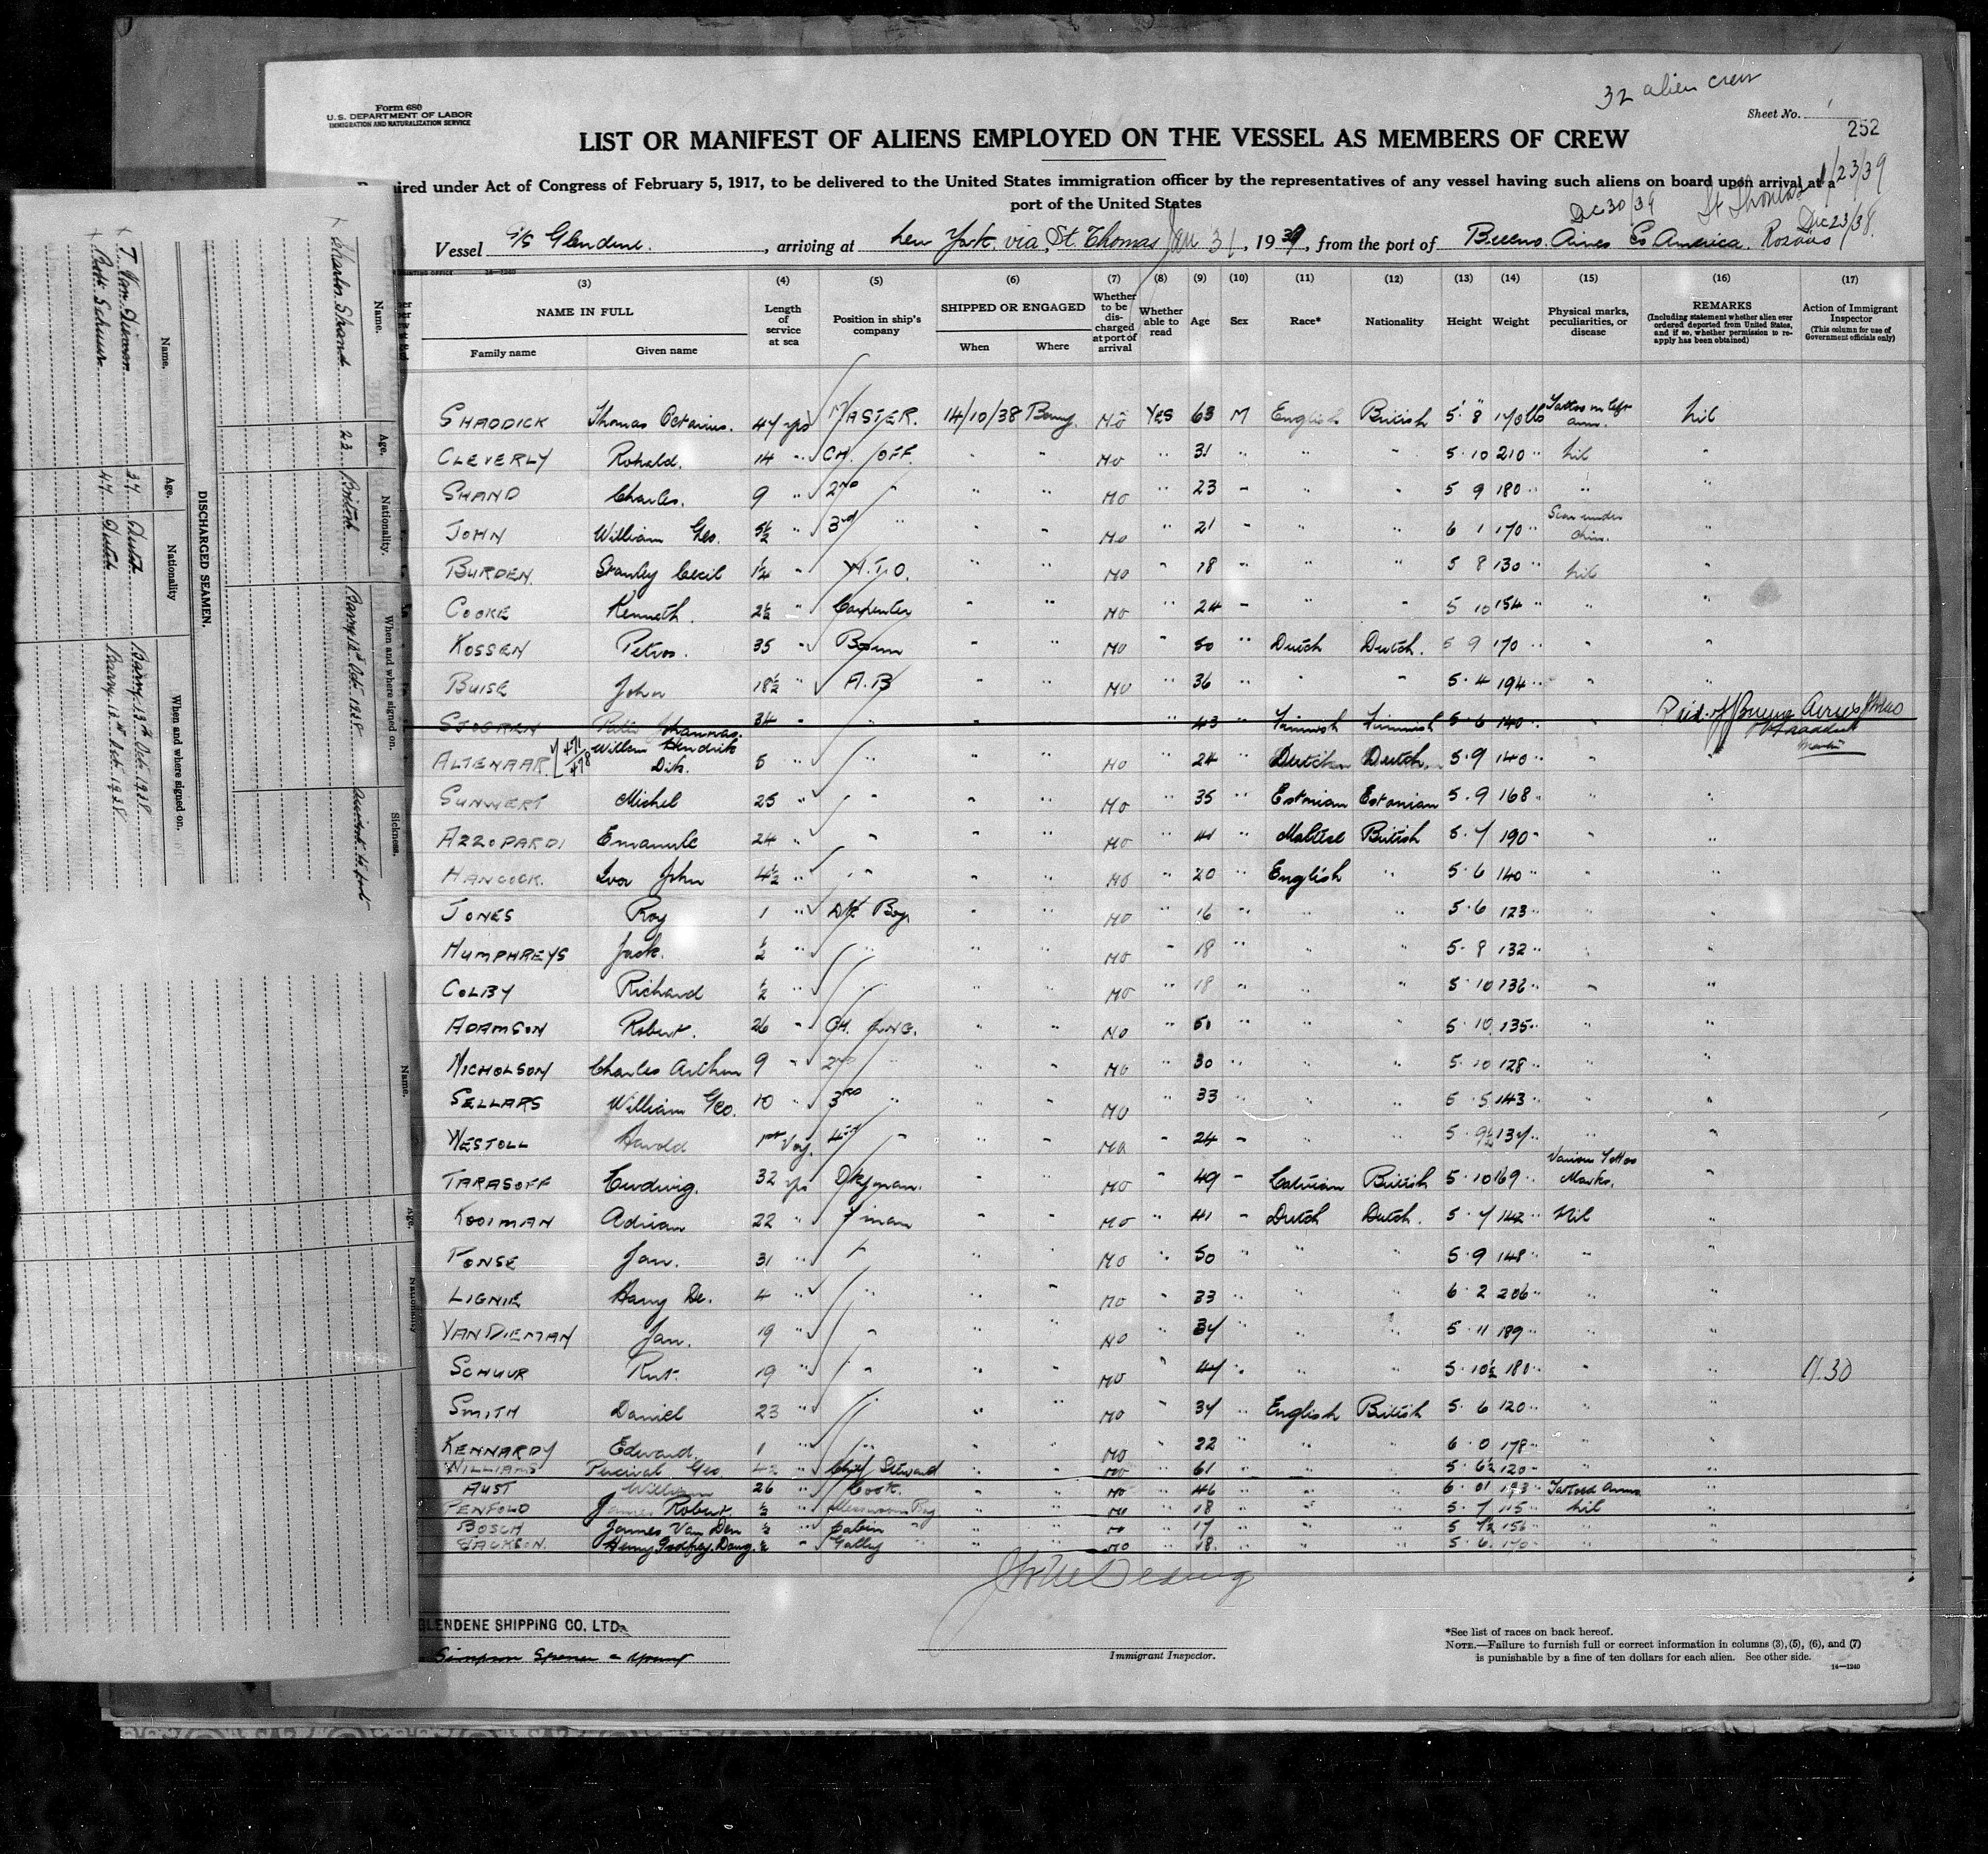 32 alien crew
Form 680
U.S. DEPARTMENT OF LABOR
IMMIGRATION AND NATURALIZATION SERVICE
Sheet No.
252
LIST OR MANIFEST OF ALIENS EMPLOYED ON THE VESSEL AS MEMBERS OF CREW
ired under Act of Congress of February 5, 1917, to be delivered to the United States immigration officer by the representatives of any vessel having such aliens on board upon arrival at a
port of the United States
1/23/39
St Thomas
Dec 30/39
Dec 23/38.
Vessel S/S Glendene., arriving at New York via St. Thomas Jan 31, 1939, from the port of Buenos Aires So America. Rosario
(3) (4) (5) (6) (7) (8) (9) (10) (11) (12) (13) (14) (15) (16) (17)
NAME IN FULL
Family name Given name
Length of service at sea
Position in ship's company
SHIPPED OR ENGAGED
When Where
Whether to be discharged at port of arrival
Whether able to read
Age
Sex
Race*
Nationality
Height
Weight
Physical marks, peculiarities, or disease
REMARKS
(Including statement whether alien ever ordered deported from United States, and if so, whether permission to reapply has been obtained)
Action of Immigrant Inspector
(This column for use of Government officials only)
SHADDICK Thomas Octavius. 47 yrs MASTER. 14/10/38 Barry. No YES 63 M English British 5' 8" 170 lbs Tattoo on left arm. Nil
CLEVERLY Ronald. 14 " CH. OFF. " " No " 31 " " " 5 10 210 " Nil "
SHAND Charles. 9 " 2nd " " " No " 23 " " " 5 9 180 " " "
JOHN William Geo. 5½ " 3rd " " " No " 21 " " " 6 1 170 " Scar under chin. "
BURDEN. Stanley Cecil 1½ " W.T.O. " " No " 18 " " " 5 8 130 " Nil "
COOKE Kenneth. 2½ " Carpenter " " No " 24 " " " 5 10 154 " " "
KOSSEN Petrus. 35 " Bosun " " No " 50 " Dutch Dutch. 5 9 170 " " "
BUISE John 18½ " A.B " " No " 36 " " " 5 4 194 " " "
SJOGREN Johannas. 34 " " " 43 " Finnish Finnish 5 6 140 " "
ALTENAAR. Willem Hendrik Dik. 5 " " " " No " 24 " Dutch Dutch. 5 9 140 " " "
SUNWERT Mishel 25 " " " " No " 35 " Estonian Estonian 5 9 168 " " "
AZZOPARDI Emanule 24 " " " " No " 41 " Maltese British 5 7 190 " " "
HANCOCK. Ivor John 4½ " " " " No " 20 " English " 5 6 140 " " "
JONES Roy 1 " Dk Boy. " " No " 16 " " " 5 6 123 " " "
HUMPHREYS Jack. ½ " " " " No " 18 " " " 5 8 132 " " "
COLBY Richard ½ " " " " No " 18 " " " 5 10 132 " " "
ADAMSON Robert. 26 " CH. ENG. " " No " 50 " " " 5 10 135 " " "
NICHOLSON Charles Arthur 9 " 2nd " " No " 30 " " " 5 10 128 " " "
SELLARS William Geo. 10 " 3RD " " " No " 33 " " " 5 5 143 " " "
WESTOLL Harold 1st Voy. 4th " " " No " 24 " " " 5 9½ 137 " " "
TARASOFF Ludwig. 32 yrs Dkyman. " " No " 49 " Latvian British 5 10 169 " Various Tattoo Marks. "
KOOIMAN Adrian 22 " F'man " " No " 41 " Dutch Dutch. 5 7 142 " Nil "
PONSE Jan. 31 " " " " No " 50 " " " 5 9 148 " " "
LIGNIE Harry De. 4 " " " " No " 33 " " " 6 2 206 " " "
VAN DIEMAN Jan. 19 " " " " No " 37 " " " 5 11 189 " " "
SCHUUR 19 " " " " No " 47 " " " 5 10½ 180 " " " 11.30
SMITH Daniel 23 " " " No " 37 " English British 5 6 120 " " "
KENNARDY Edward. 1 " " " " No " 22 " " " 6 0 178 " " "
WILLIAMS Percival Geo. 42 " Chief Steward " " No " 61 " " " 5 6½ 120 " " "
AUST William 26 " Cook. " " No " 46 " " " 6 01 193 " Tattoed Arms "
PENFOLD James Robert. ½ " Messroom Boy " " No " 18 " " " 5 7 115 " Nil "
BOSCH Jannes Van Den ½ " Cabin " " " " 17 " " " 5 7½ 156 " " "
JACKSON. Henry Godfrey Doug. ½ " Galley " " " No " 18. " " " 5 6 " " "
GLENDENE SHIPPING CO. LTD.
Simpson Spence & Young
Immigrant Inspector.
*See list of races on back hereof.
NOTE.—Failure to furnish full or correct information in columns (3), (5), (6), and (7)
is punishable by a fine of ten dollars for each alien. See other side.
14—1240
DISCHARGED SEAMEN.
Name. Age. Nationality When and where signed on.
37 Dutch Barry 13th Oct. 1938.
47 Dutch Barry. 13th Oct. 1938.
Name. Age. Nationality. When and where signed on. Sickness.
Charles Shand 23 British Barry 13th Oct. 1938.
Name. Age. Nationality